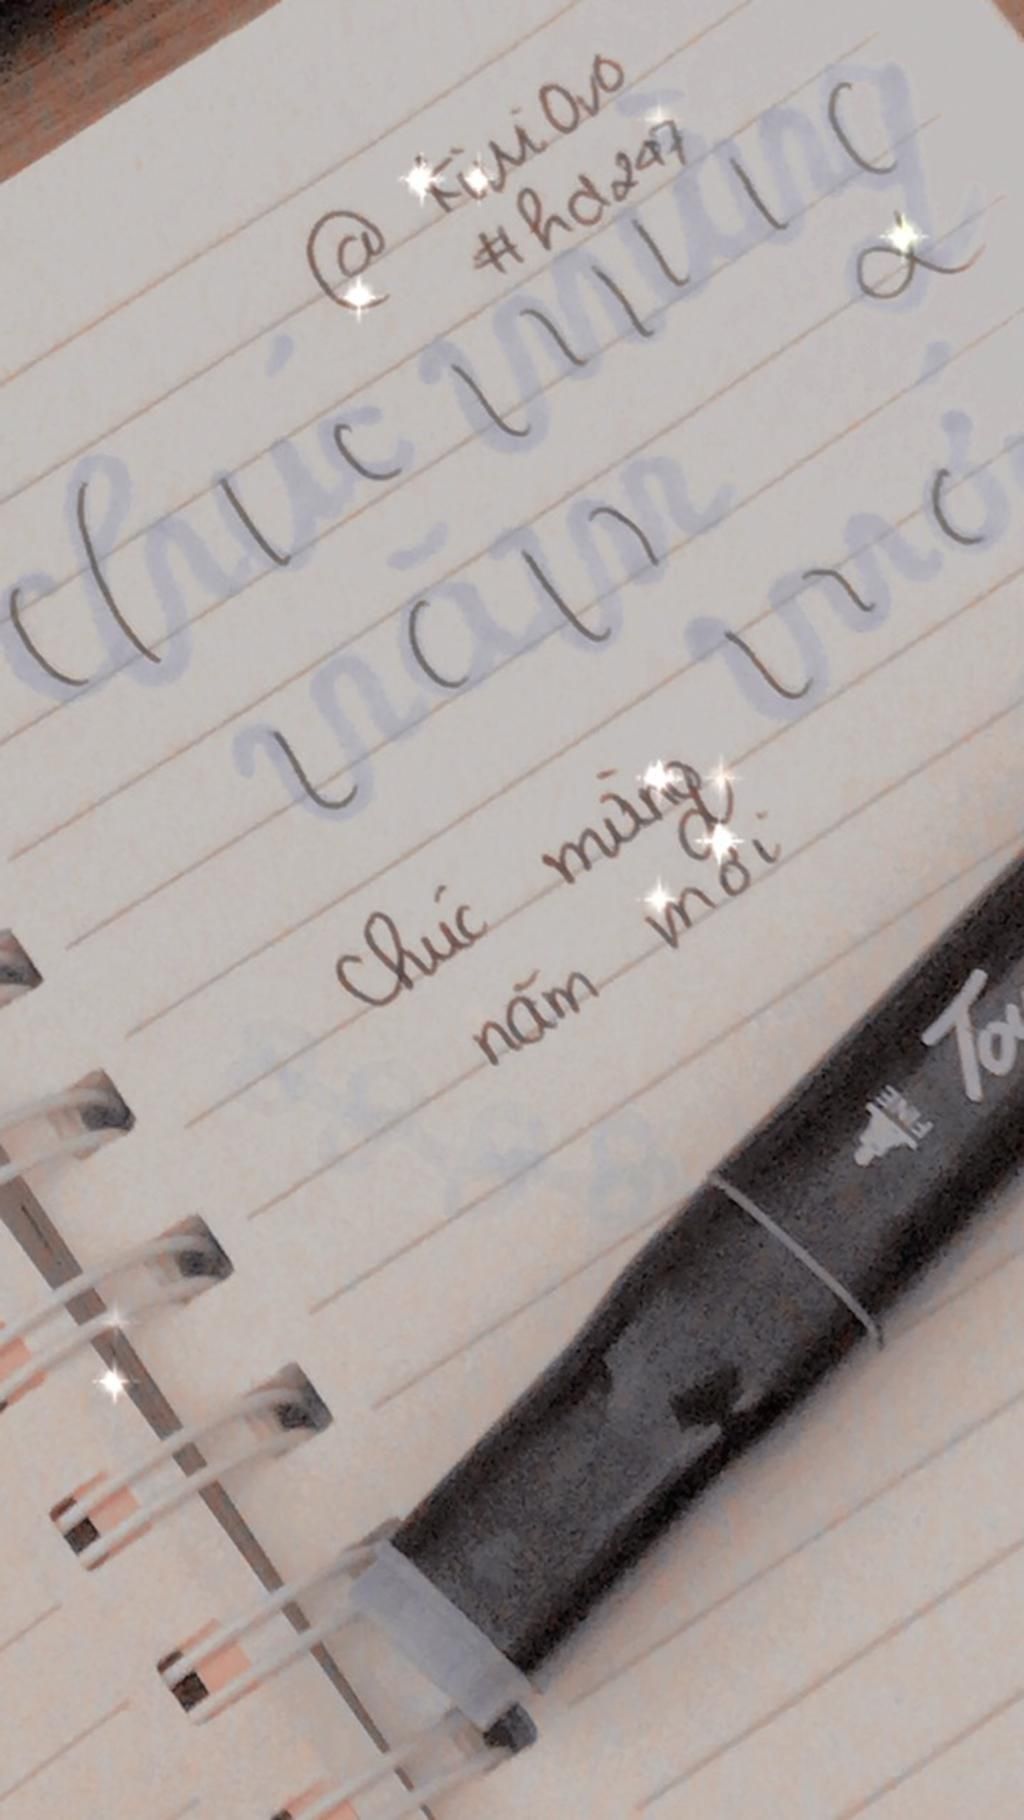 @ KiwiOvO
#hd247
chúc mừng
năm mới
chúc mừng
năm mới
FINE